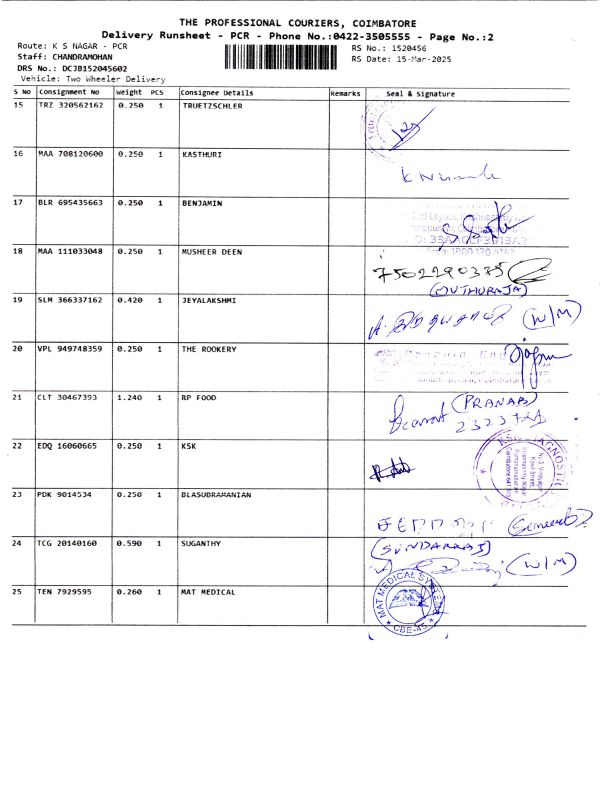 THE PROFESSIONAL COURIERS, COIMBATORE
Delivery Runsheet - PCR - Phone No.:0422-3505555 - Page No.:2
Route: K S NAGAR - PCR
RS No.: 1520456
Staff: CHANDRAMOHAN
RS Date: 15-Mar-2025
DRS No.: DCJB152045602
Vehicle: Two Wheeler Delivery
S No Consignment No Weight PCS Consignee Details Remarks Seal & Signature
15 TRZ 320562162 0.250 1 TRUETZSCHLER
16 MAA 708120600 0.250 1 KASTHURI
17 BLR 695435663 0.250 1 BENJAMIN
18 MAA 111033048 0.250 1 MUSHEER DEEN
7502290335
(MUTHURAJA)
19 SLM 366337162 0.420 1 JEYALAKSHMI
(W/M)
20 VPL 949748359 0.250 1 THE ROOKERY
21 CLT 30467393 1.240 1 RP FOOD
(PRANAB)
22 EDQ 16060665 0.250 1 KSK
23 PDK 9014534 0.250 1 BLASUBRAMANIAN
24 TCG 20140160 0.590 1 SUGANTHY
(SUNDARRAJ)
(W/M)
25 TEN 7929595 0.260 1 MAT MEDICAL
MAT MEDICAL SYSTEMS
* CBE-45 *